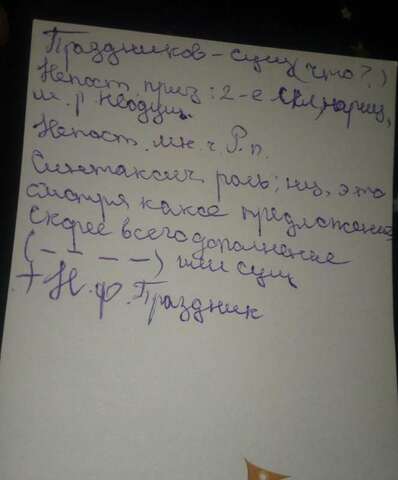 Праздников - сущ (что?)
Непост. приз: 2-е скл, нариц,
м. р. неодуш.
Непост. мн. ч. Р.п.
Синтаксич. роль; ну, это
смотря какое предложение
Скорее всего дополнение
(_ _ _ _) или сущ
+ Н. ф. Праздник